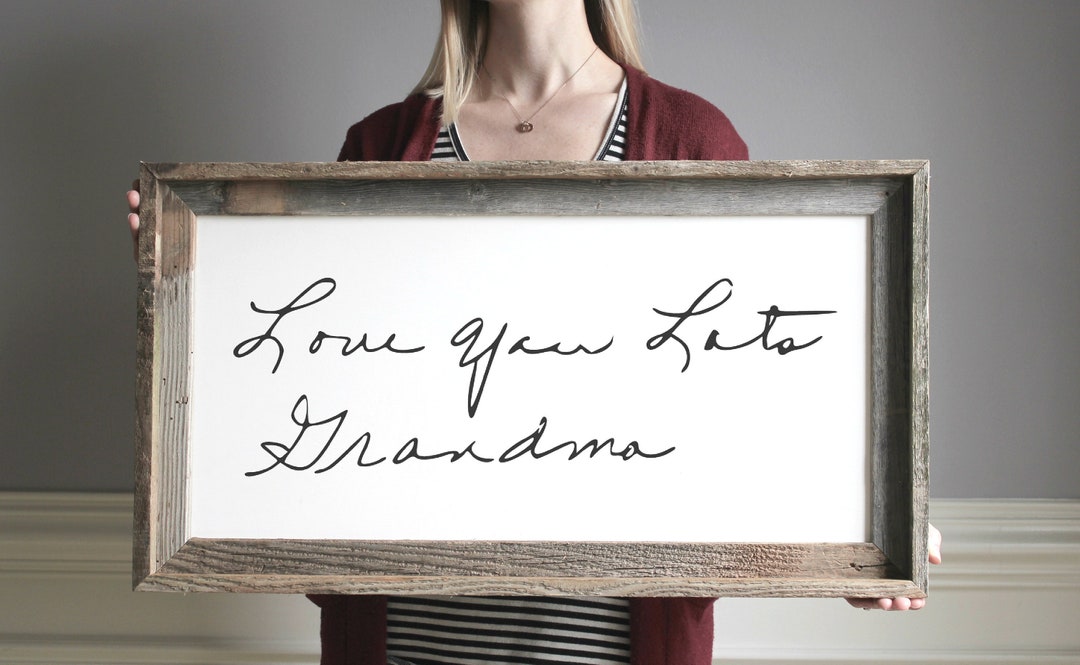 Love you Lots
Grandma